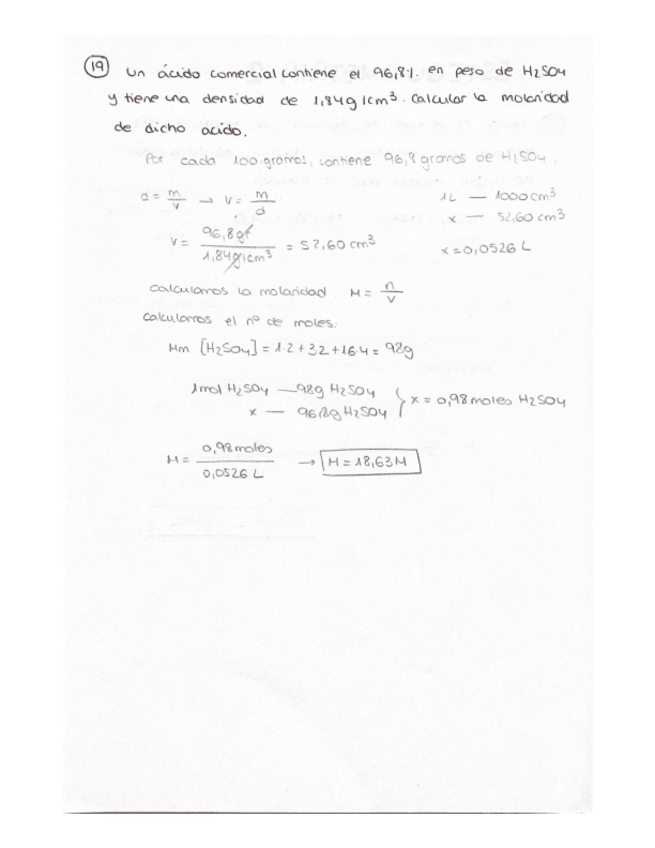 19 Un ácido comercial contiene el 96,8%. en peso de H2SO4
y tiene una densidad de 1,84g/cm³. Calcular la molaridad
de dicho ácido.
Por cada 100 gramos, contiene 96,8 gramos de H2SO4.
d = m/v → v = m/d
1L — 1000cm³
x — 52,60 cm³
v = 96,8gr / 1,84g/cm³ = 52,60 cm³
x = 0,0526 L
Calculamos la molaridad M = n/v
Calculamos el nº de moles:
Mm [H2SO4] = 1·2 + 32 + 16·4 = 98g
1mol H2SO4 — 98g H2SO4
x — 96,8g H2SO4 } x = 0,98 moles H2SO4
M = 0,98 moles / 0,0526 L → M = 18,63 M